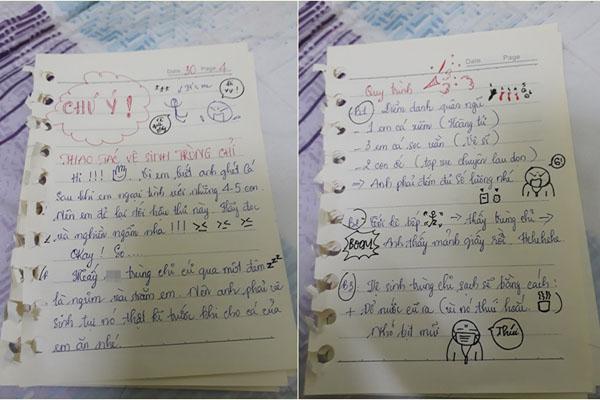 Date 30 Page 4
CHÚ Ý!
THAO TÁC VỆ SINH TRÙNG CHỈ
Hi !!! Vì em biết anh ghét cá
Sau khi em ngoại tình với những 4-5 con.
Nên em để lại tối hậu thư này. Hãy đọc
và nghiền ngẫm nha !!!
Okay! So...
Mấy trùng chỉ cũ qua một đêm zzz
là ngủm vài trăm em. Nên anh phải vệ
sinh tụi nó thật kĩ trước khi cho cá của
em ăn nhé.
Date Page
Quy trình
B1 Điểm danh quân ngũ
- 1 em cá xiêm (Hoàng tử)
- 3 em cá sọc vằn (Vệ sĩ)
- 2 con ốc (tạp vụ chuyên lau dọn)
=> Anh phải đếm đủ số lượng nhé
B2 Tới kệ bếp -> thấy trùng chỉ ->
BOOM! Anh thấy mảnh giấy rồi. Hehehehe.
B3 Vệ sinh trùng chỉ sạch sẽ bằng cách:
+ Đổ nước cũ ra (vì nó thúi hoắc)
Nhớ bịt mũi
Thúi